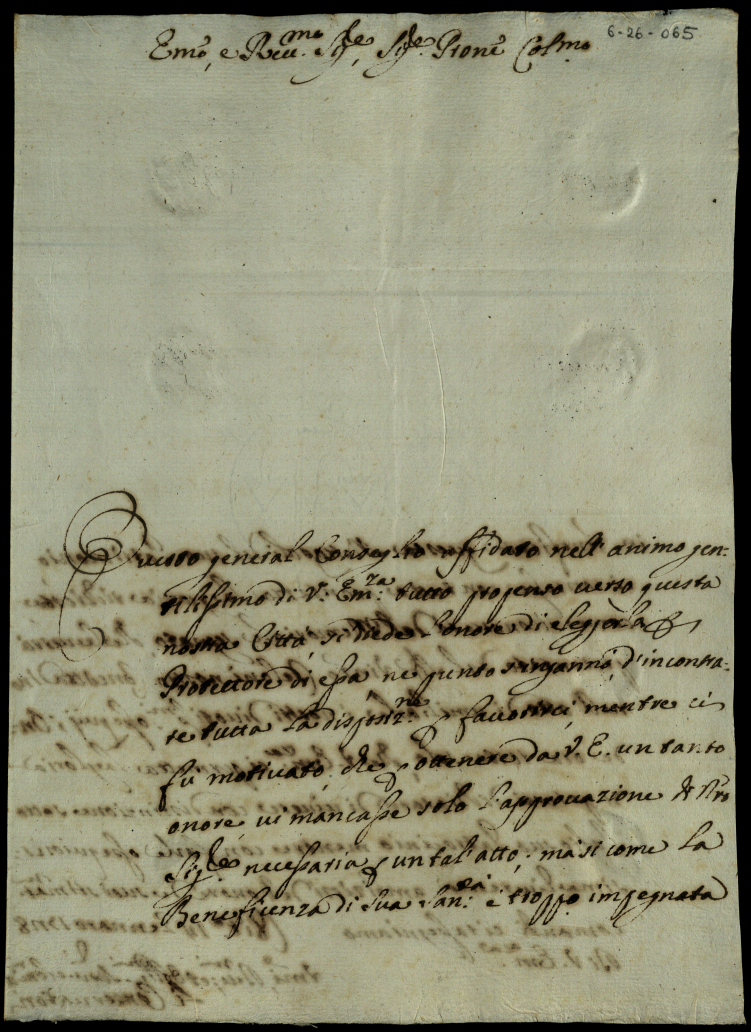 6-26-065
Emo, e Reu.mo Sig.re, Sig.re Prone Colmo.
Questo general Conseglio affidato nell'animo gen-
tilissimo di V. Em.za tutto propenso uerso questa
nostra Città, si diede l'onore di eleggerla
Protettore di essa, ne punto s'ingannò d'incontra-
re tutta la disposiz.ne favorirci, mentre ci
fù motivato, che ottenere da V. E. un tanto
onore, ui mancasse solo l'approuazione di Nro
Sig.re necessaria un tal'atto; mà si come la
Beneficenza di Sua San.tà è troppo impegnata